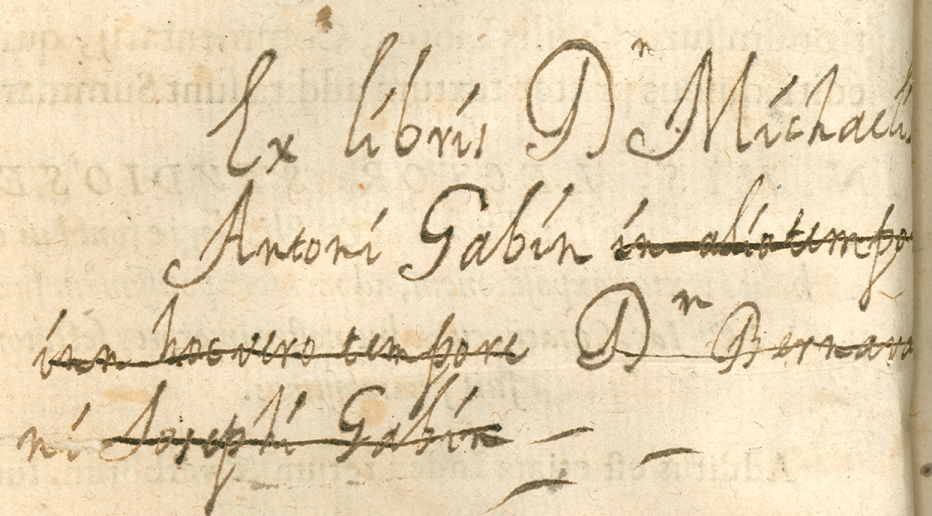 Ex libris Dⁿ Michaelis
Antoni Gabin in alio tempo
inn hoc vero tempore Dⁿ Bernar
ni Josephi Gabin